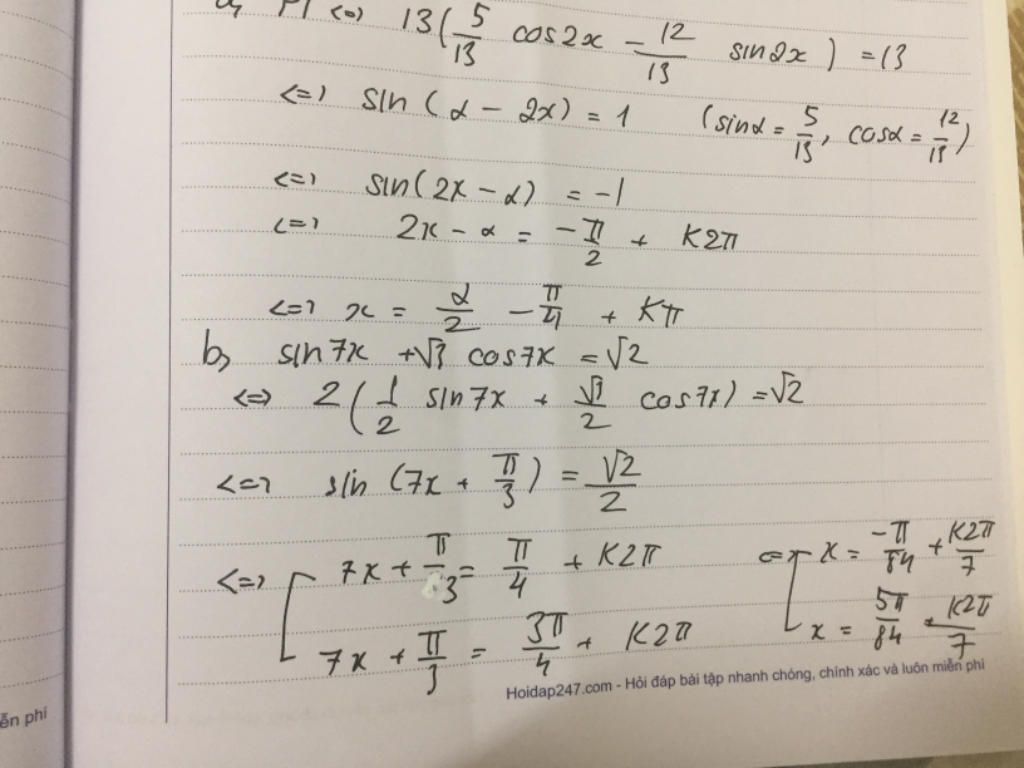 PT <=> 13(5/13 cos2x - 12/13 sin2x) = 13
<=> sin(α - 2x) = 1 (sinα = 5/13, cosα = 12/13)
<=> sin(2x - α) = -1
<=> 2x - α = -π/2 + K2π
<=> x = α/2 - π/4 + Kπ
b, sin7x + √3 cos7x = √2
<=> 2(1/2 sin7x + √3/2 cos7x) = √2
<=> sin(7x + π/3) = √2/2
<=> [ 7x + π/3 = π/4 + K2π <=> [ x = -π/84 + K2π/7
7x + π/3 = 3π/4 + K2π x = 5π/84 + K2π/7
Hoidap247.com - Hỏi đáp bài tập nhanh chóng, chính xác và luôn miễn phí
ễn phí